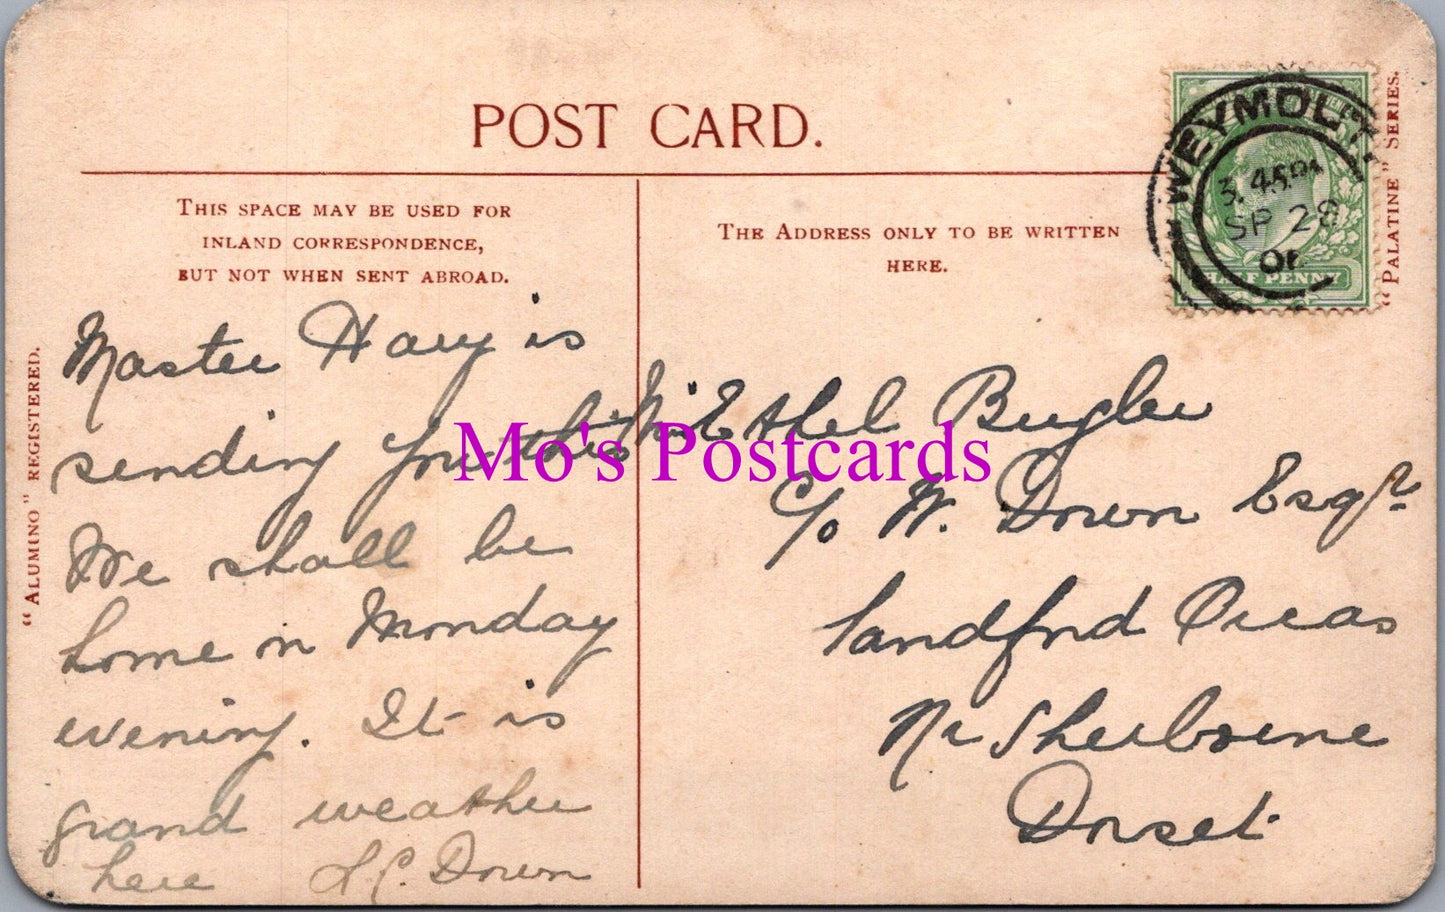 POST CARD.
THIS SPACE MAY BE USED FOR
INLAND CORRESPONDENCE,
BUT NOT WHEN SENT ABROAD.
THE ADDRESS ONLY TO BE WRITTEN
HERE.
WEYMOUTH
3.45PM
SP 28
HALF PENNY
"PALATINE" SERIES.
"ALUMINO" REGISTERED.
Master Harry is
sending you this
We shall be
home on Monday
evening. It is
grand weather
here L.C. Down
Miss Ethel Bugler
c/o W. Down Esqr
Sandford Orcas
Nr Sherborne
Dorset
Mo's Postcards